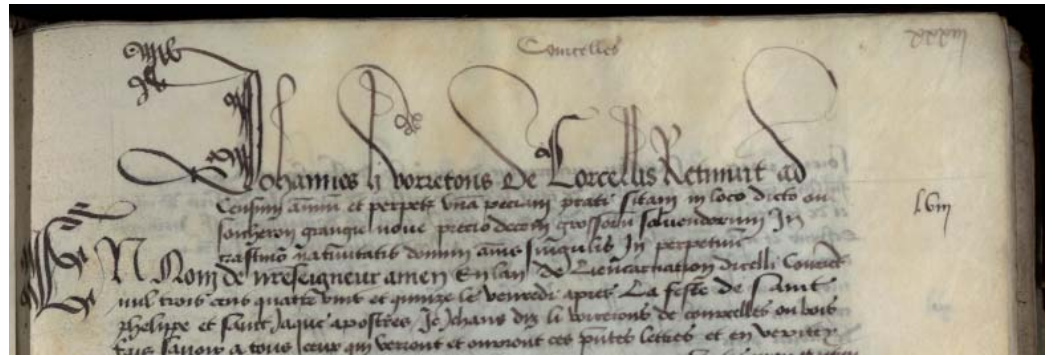 Courcelles
Johannes li vorretons de Corcellis Retinuit ad
Censum annuu et perpetu una peciam prati sitam in loco dicto ou
grange nove precio decem grossoru solvendorum In
crastino nativitatis domini annis singulis In perpetuu
EN Nom de nreseigneur amen En lan de Lencarnacion dicelli Courrent
mil trois cens quatre vins et quinze le venredi apres La feste de saint
phelippe et saint Jaque apostres Je Jehans diz li voiretons de corcelles ou bois
fais savoir a tous ceux qui verront et orront ces pntes lettres et en verite
lviii